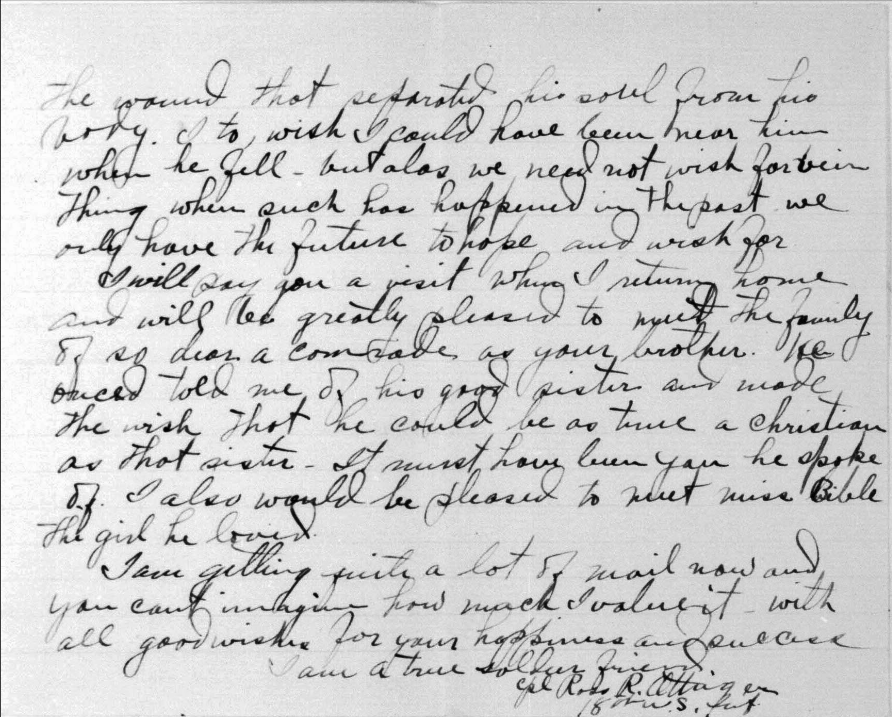 the wound that separated his soul from his
body. I to, wish I could have been near him
when he fell - but alas we need not wish for vein
thing when such has happened in the past we
only have the future to hope and wish for
I will pay you a visit when I return home
and will be greatly pleased to meet the family
of so dear a comrade as your brother. he
onced told me of his good sister and made
the wish that he could be as true a christian
as that sister - It must have been you he spoke
of. I also would be pleased to meet miss Bible
the girl he loved.
I am getting quite a lot of mail now and
you cant imagine how much I value it - with
all good wishes for your happiness and success
I am a true soldier friend
Cpl Ross R. Ottinger
18th U.S. Inf